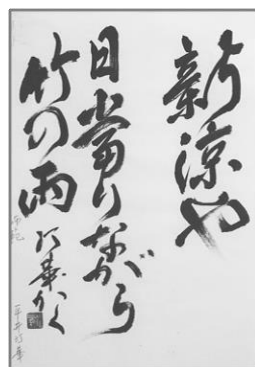 新涼や
日当りながら
竹の雨
かく